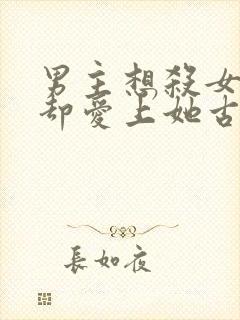 男主想殺女
却愛上她古
長如夜